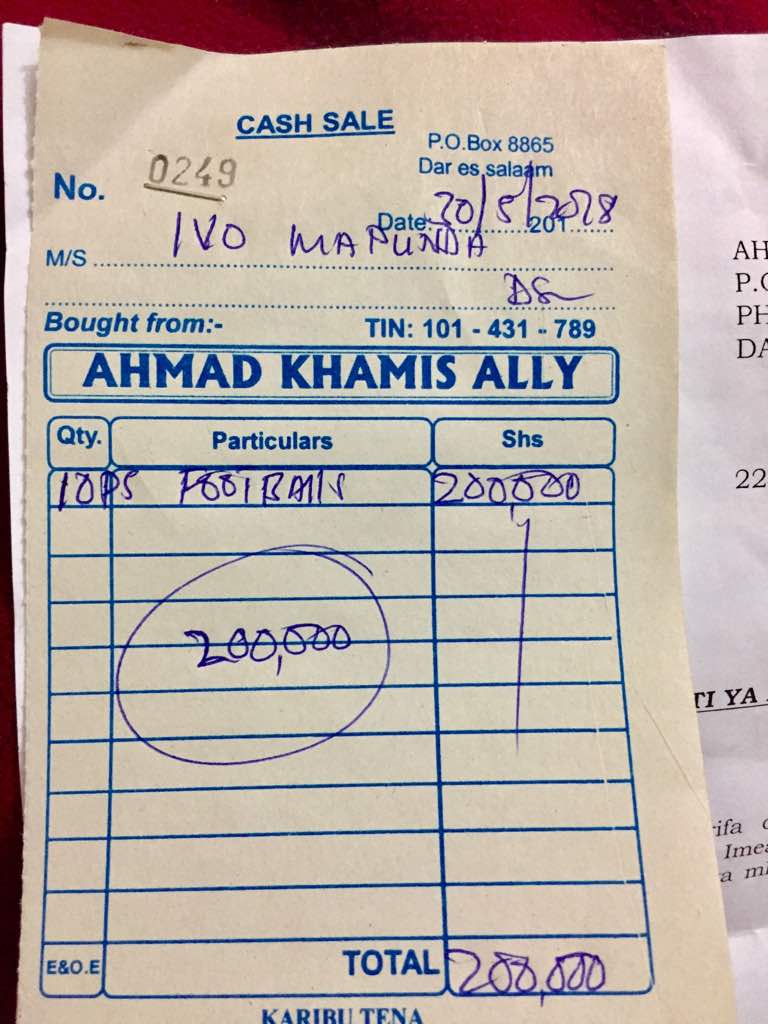 CASH SALE
P.O.Box 8865
Dar es salaam
No. 0249
Date: 20/5/2018
M/S IVO MAPUNDA
DSM
Bought from:-
TIN: 101 - 431 - 789
AHMAD KHAMIS ALLY
Qty. Particulars Shs
10PS FOOTBALLS 200,000
200,000
E&O.E TOTAL 200,000
KARIBU TENA
AH
P.O
PH
DA
22
TI YA
rifa
Imea
a ml